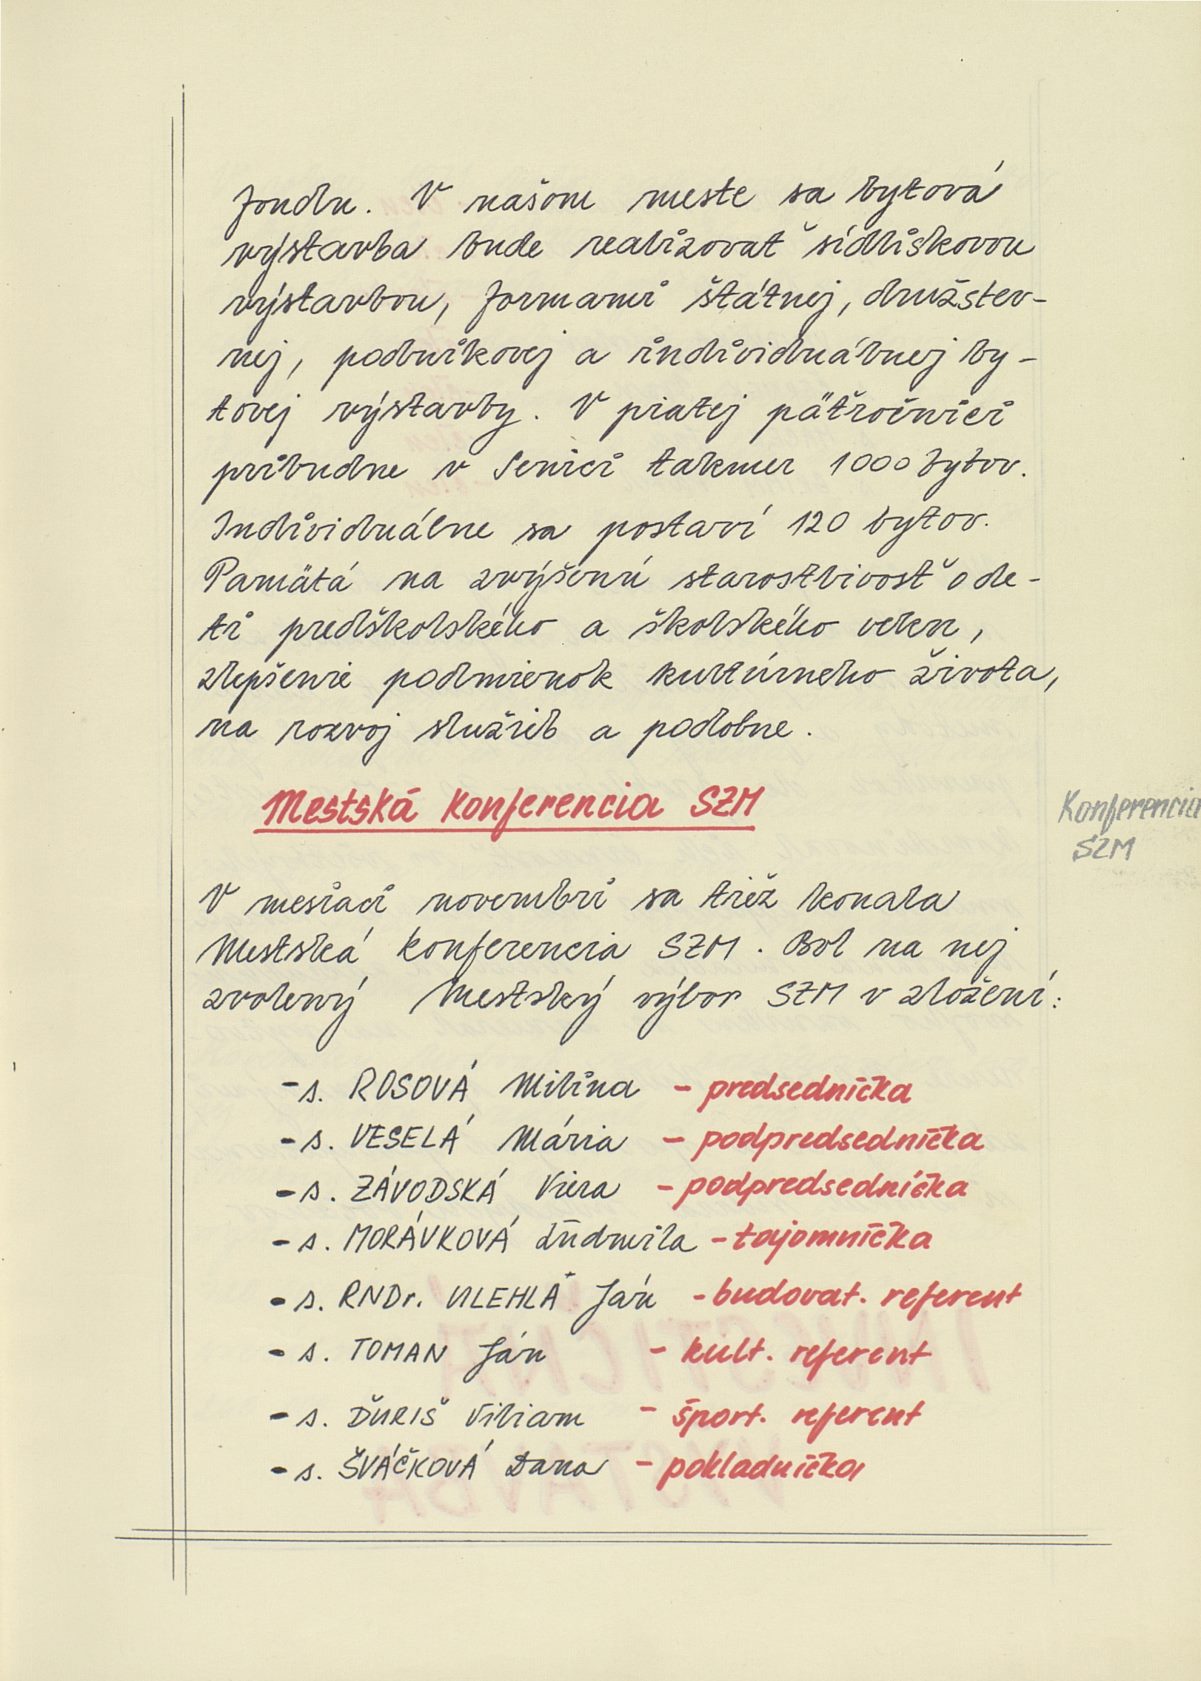 fondu. V našom meste sa bytová
výstavba bude realizovať sídliskovou
výstavbou, formami štátnej, družstev-
nej, podnikovej a individuálnej by-
tovej výstavby. V piatej päťročnici
pribudne v Senici takmer 1000 bytov.
Individuálne sa postaví 120 bytov.
Pamätá na zvýšenú starostlivosť o de-
ti predškolského a školského veku,
zlepšenie podmienok kultúrneho života,
na rozvoj služieb a podobne.
Mestská konferencia SZM
Konferencia
SZM
V mesiaci novembri sa tiež konala
Mestská konferencia SZM. Bol na nej
zvolený Mestský výbor SZM v zložení:
- s. ROSOVÁ Milina - predsedníčka
- s. VESELÁ Mária - podpredsedníčka
- s. ZÁVODSKÁ Viera - podpredsedníčka
- s. MORÁVKOVÁ Ľudmila - tajomníčka
- s. RNDr. ULEHLA Ján - budovat. referent
- s. TOMAN Ján - kult. referent
- s. ĎURIŠ Viliam - šport. referent
- s. ŠVÁČKOVÁ Dana - pokladníčka